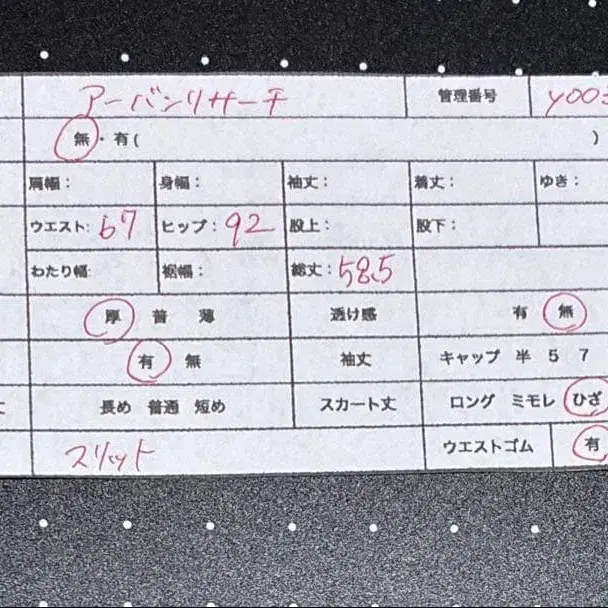 アーバンリサーチ 管理番号 y00
無・有( )
肩幅: 身幅: 袖丈: 着丈: ゆき:
ウエスト: 67 ヒップ: 92 股上: 股下:
わたり幅: 裾幅: 総丈: 58.5
厚 普 薄 透け感 有 無
有 無 袖丈 キャップ 半 5 7
丈 長め 普通 短め スカート丈 ロング ミモレ ひざ
スリット ウエストゴム 有